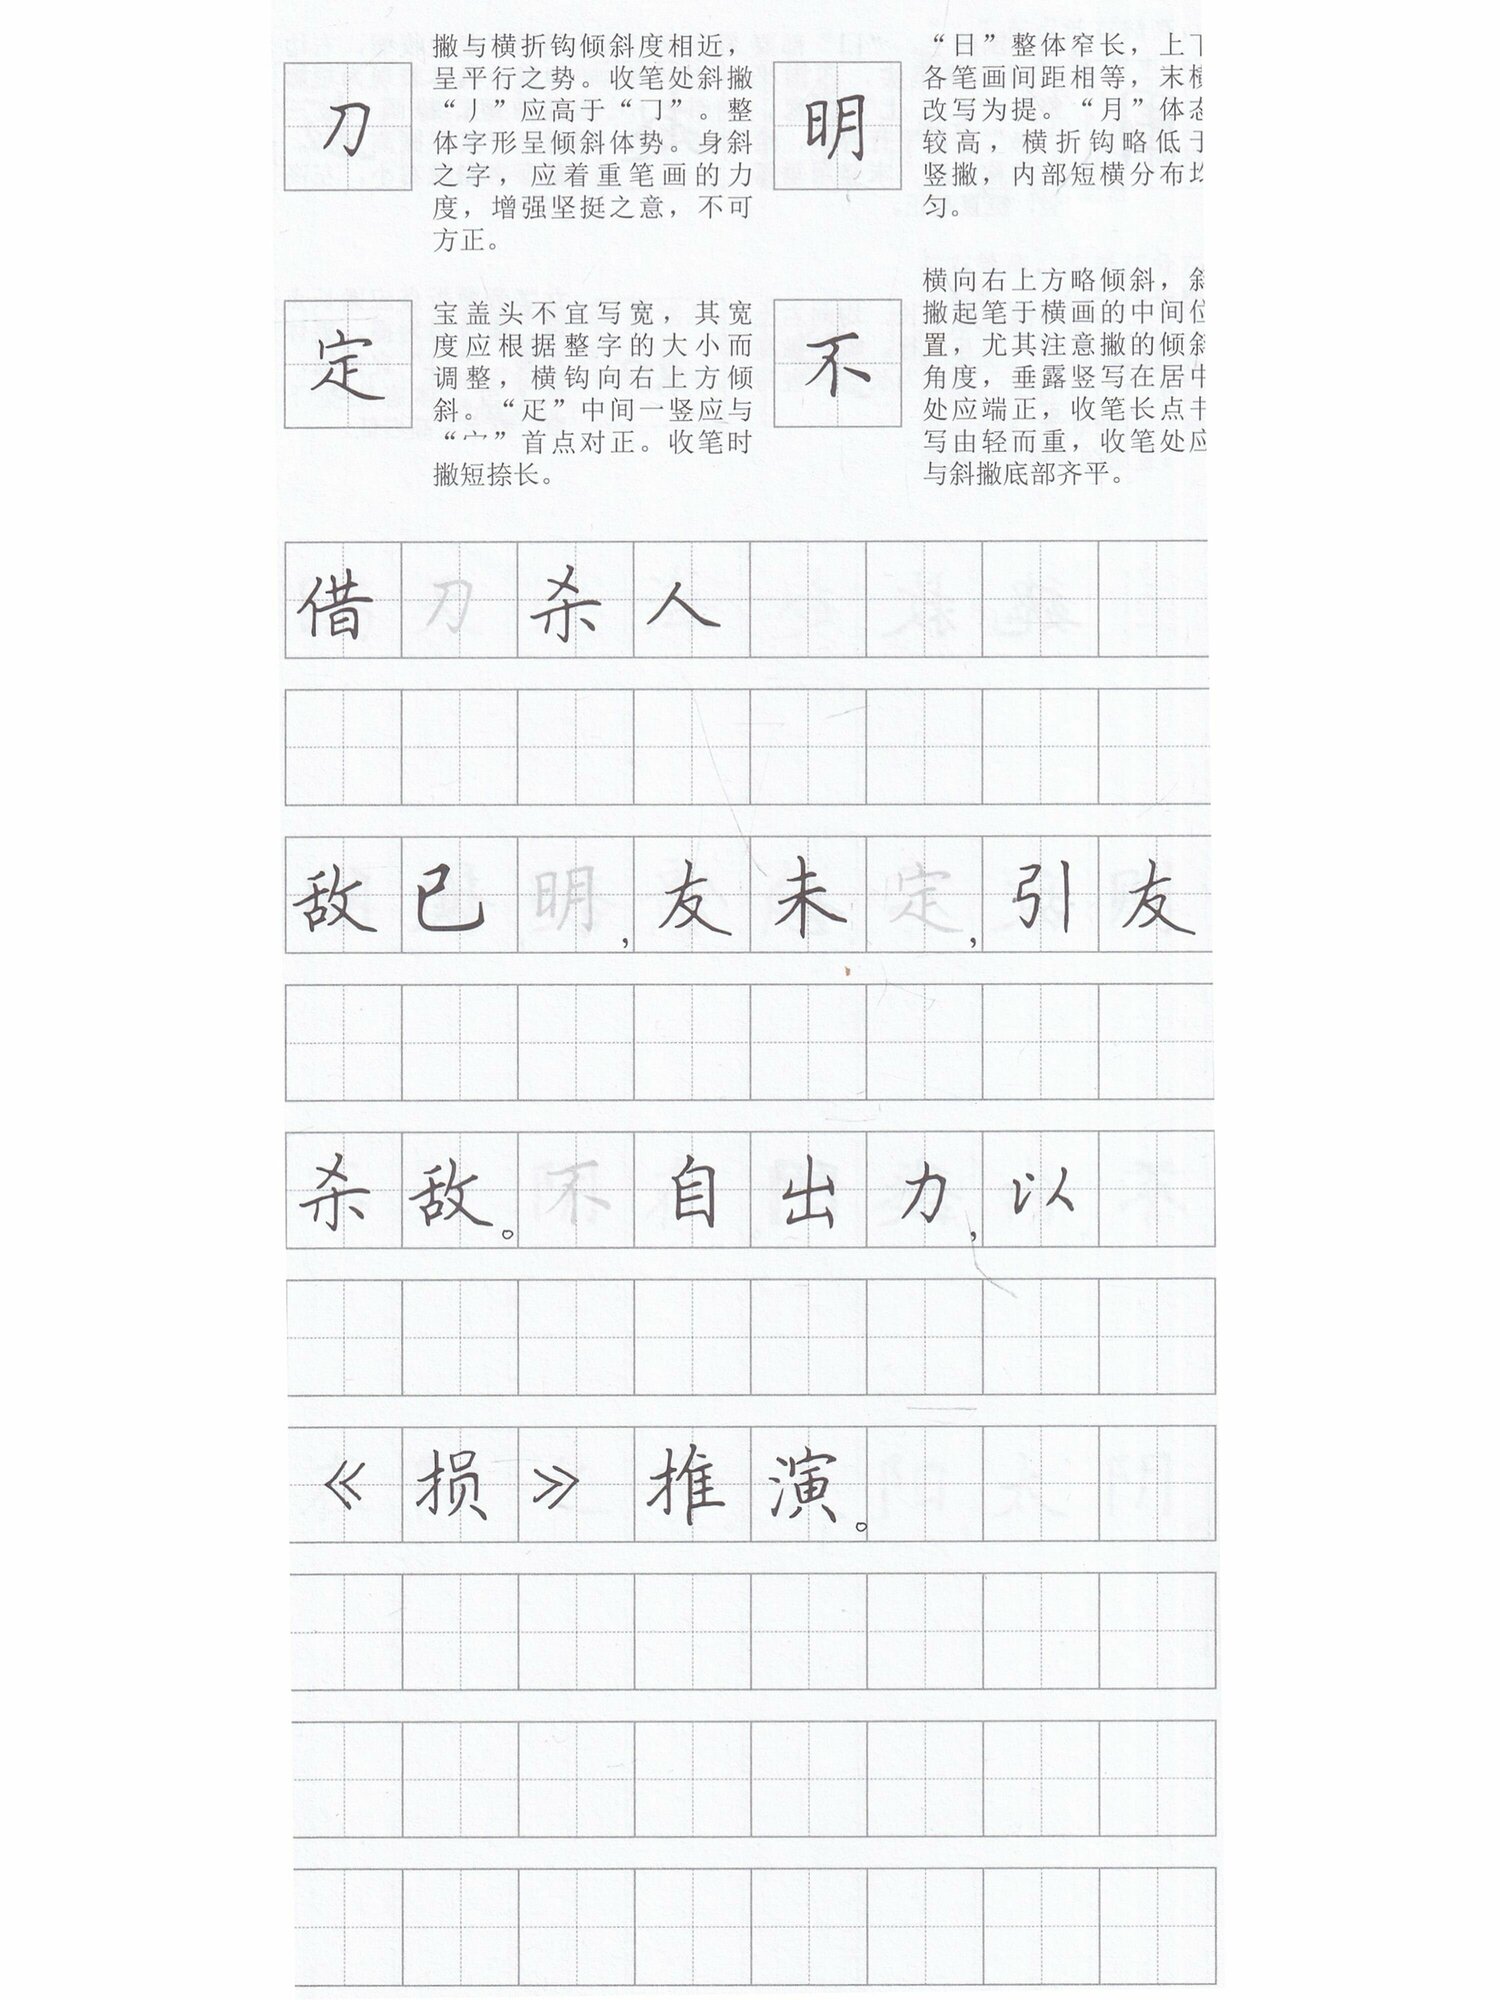 刀
撇与横折钩倾斜度相近，
呈平行之势。收笔处斜撇
“丿”应高于“㇆”。整
体字形呈倾斜体势。身斜
之字，应着重笔画的力
度，增强坚挺之意，不可
方正。
明
“日”整体窄长，上下
各笔画间距相等，末横
改写为提。“月”体态
较高，横折钩略低于
竖撇，内部短横分布均
匀。
定
宝盖头不宜写宽，其宽
度应根据整字的大小而
调整，横钩向右上方倾
斜。“疋”中间一竖应与
“宀”首点对正。收笔时
撇短捺长。
不
横向右上方略倾斜，斜
撇起笔于横画的中间位
置，尤其注意撇的倾斜
角度，垂露竖写在居中
处应端正，收笔长点书
写由轻而重，收笔处应
与斜撇底部齐平。
借刀杀人
敌已明，友未定，引友
杀敌。不自出力，以
《损》推演。